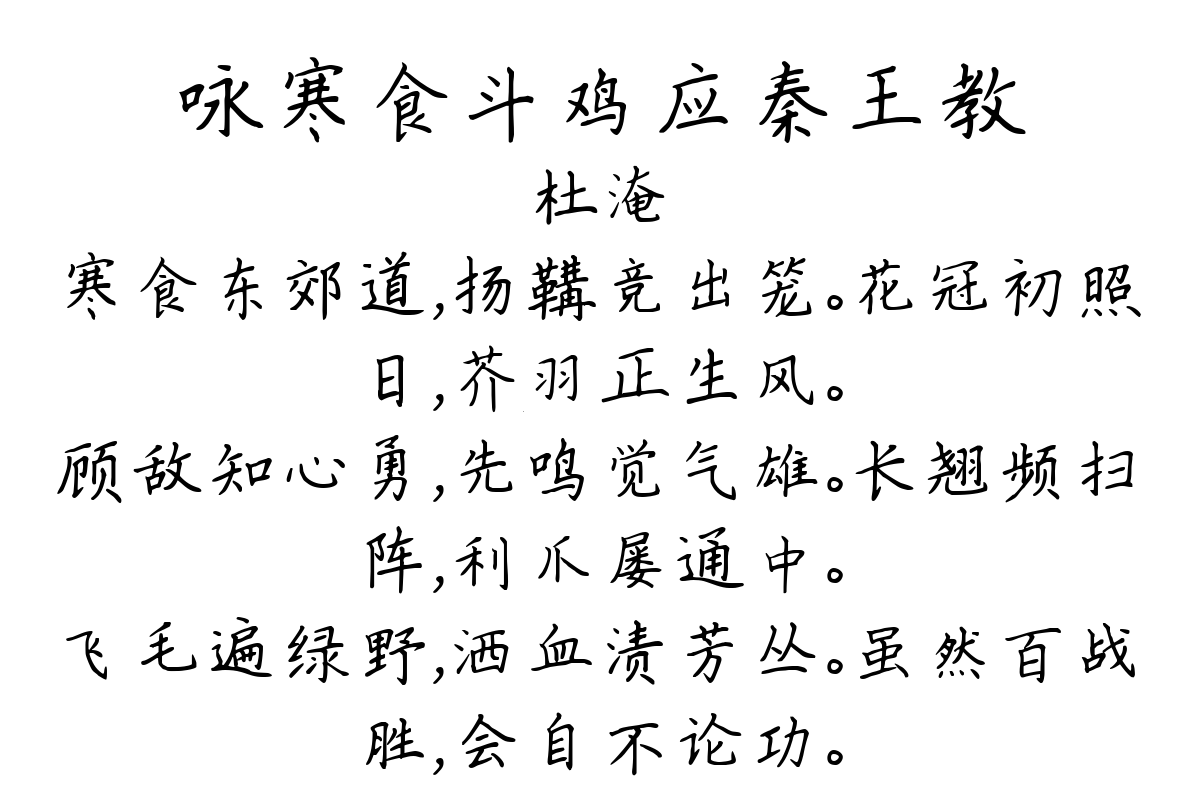 咏寒食斗鸡应秦王教
杜淹
寒食东郊道,扬鞲竞出笼。花冠初照
日,芥羽正生风。
顾敌知心勇,先鸣觉气雄。长翘频扫
阵,利爪屡通中。
飞毛遍绿野,洒血渍芳丛。虽然百战
胜,会自不论功。